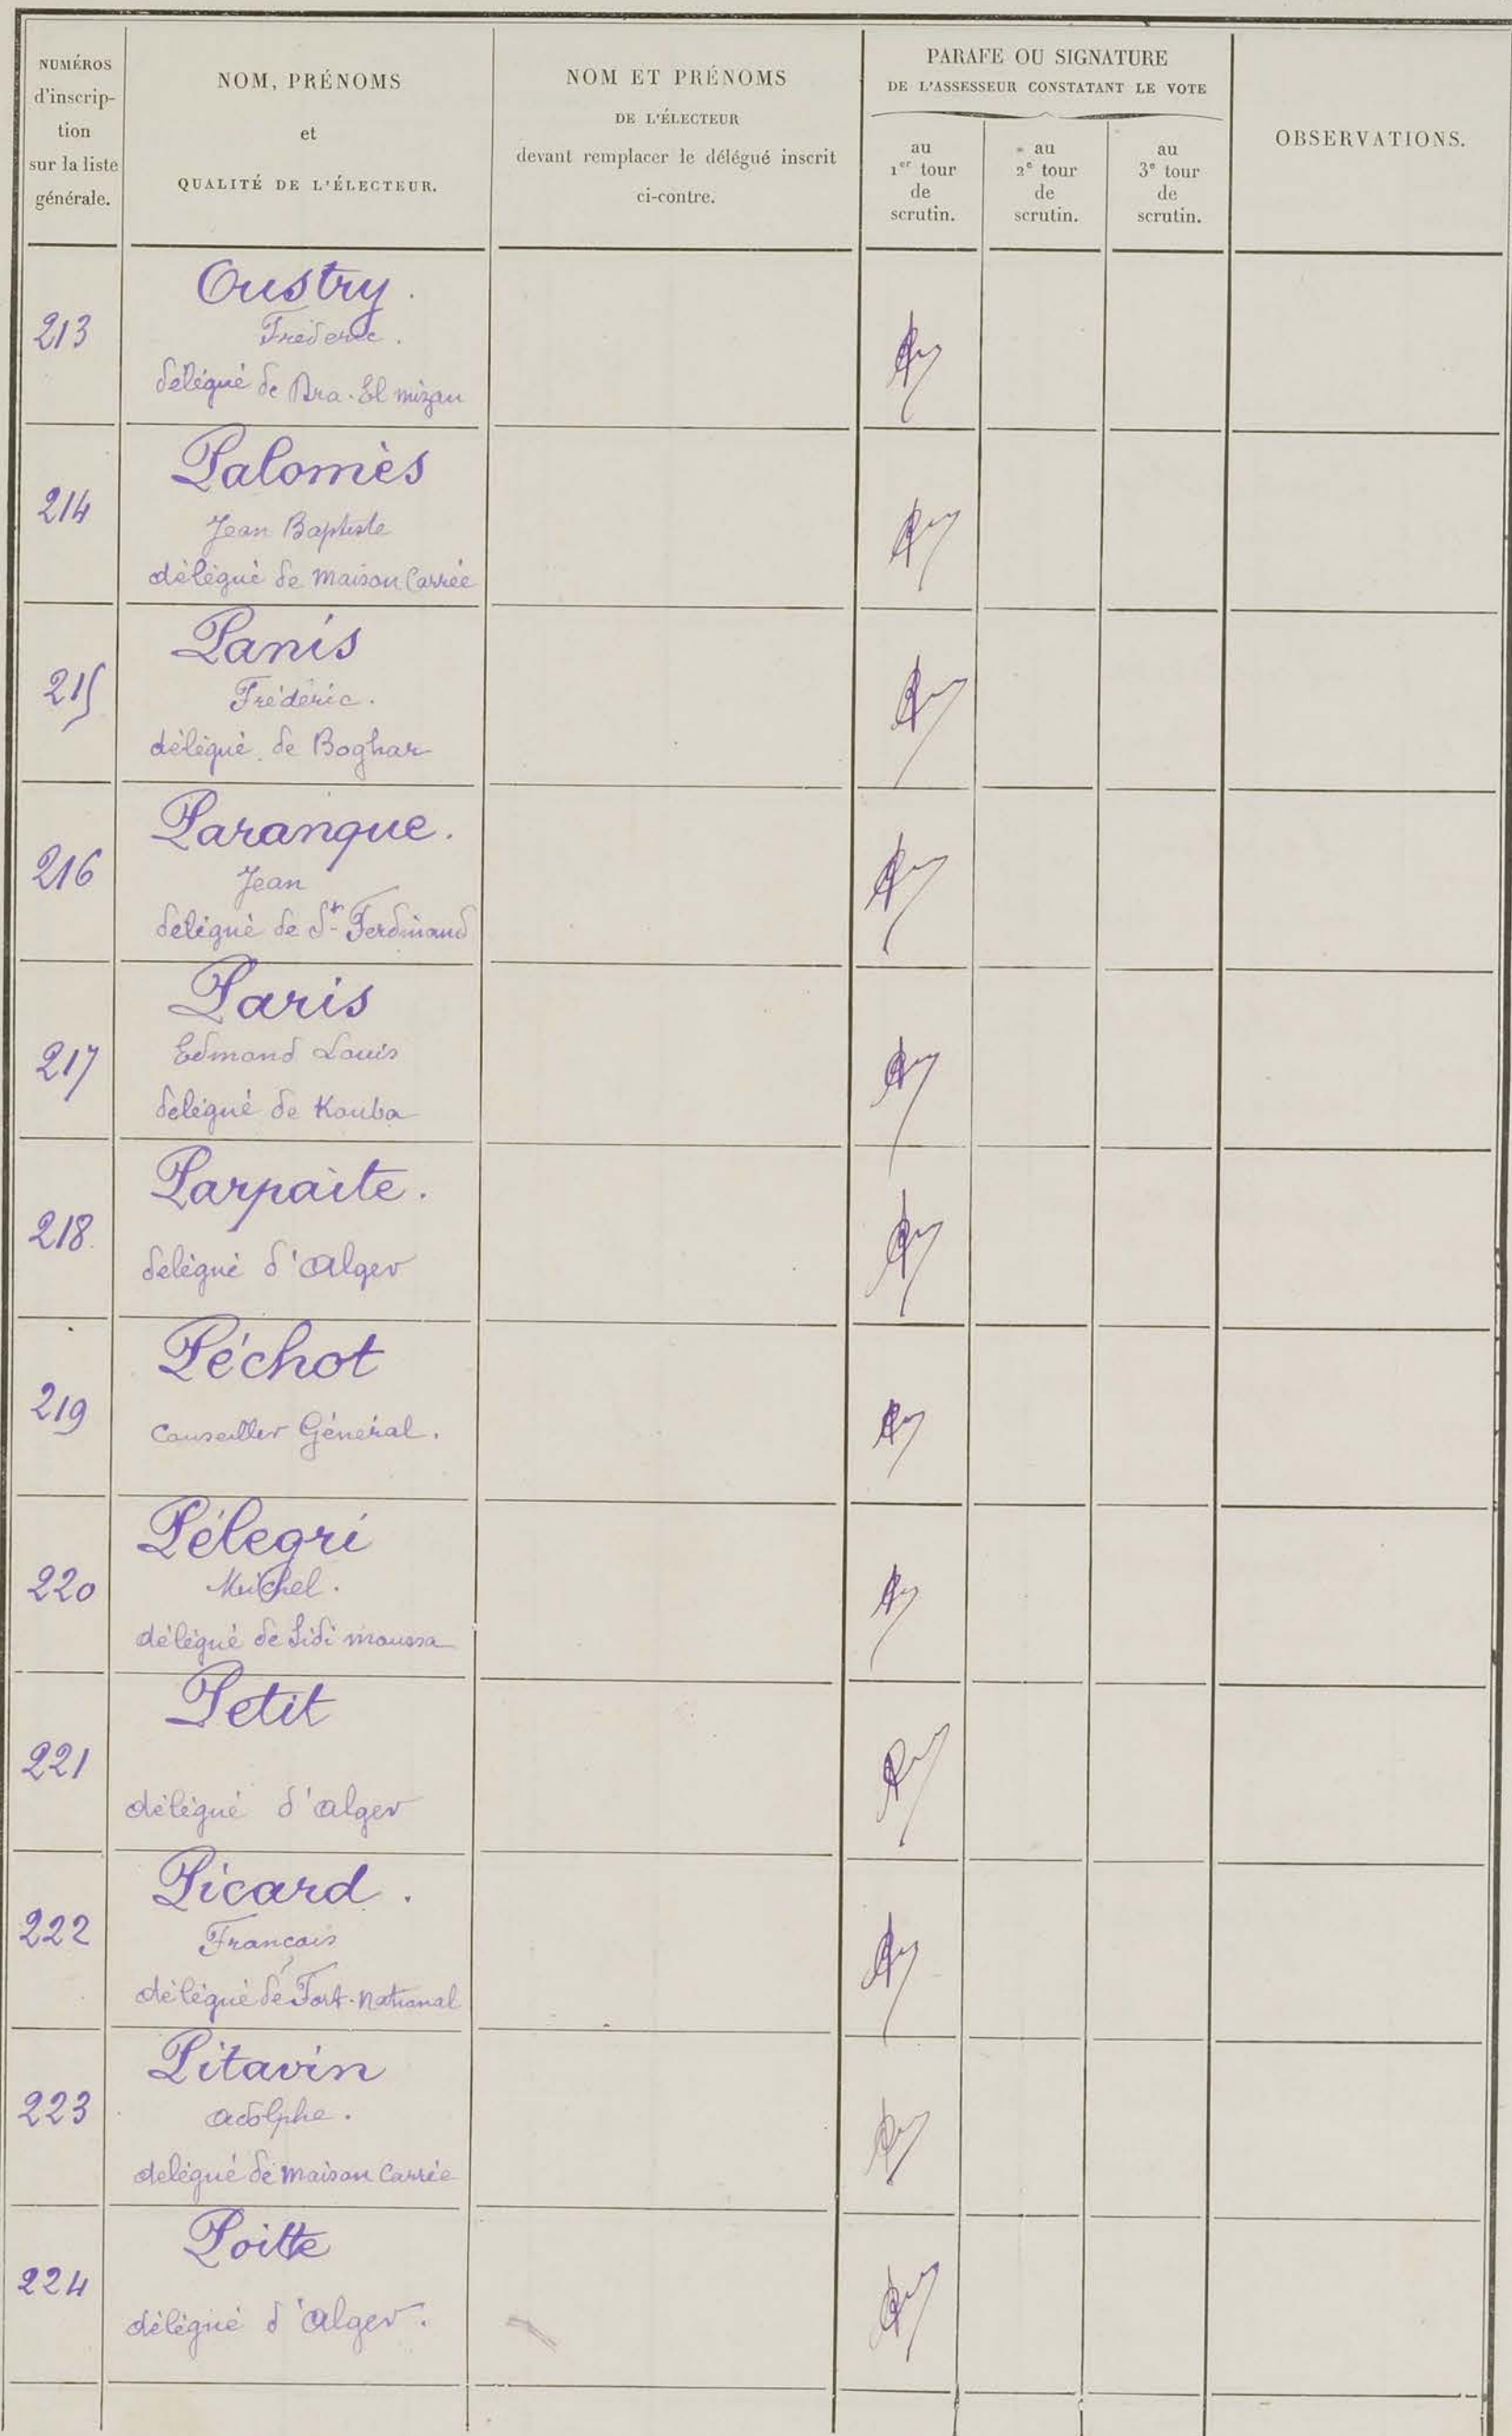 NUMÉROS
d'inscrip-
tion
sur la liste
générale.
NOM, PRÉNOMS
et
QUALITÉ DE L'ÉLECTEUR.
NOM ET PRÉNOMS
DE L'ÉLECTEUR
devant remplacer le délégué inscrit
ci-contre.
PARAFE OU SIGNATURE
DE L'ASSESSEUR CONSTATANT LE VOTE
au
1er tour
de
scrutin.
au
2e tour
de
scrutin.
au
3e tour
de
scrutin.
OBSERVATIONS.
213
Oustry.
Fréderic.
délégué de Dra-El mizan
214
Palomès
Jean Baptiste
délégué de Maison Carrée
215
Panis
Frédéric.
délégué de Boghar
216
Paranque.
Jean
délégué de St Ferdinand
217
Paris
Edmond Louis
délégué de Kouba
218
Parpaite.
délégué d'Alger
219
Péchot
Conseiller Général.
220
Pélegri
Michel.
délégué de Sidi moussa
221
Petit
délégué d'Alger
222
Picard.
François
délégué de Fort-National
223
Pitavin
Adolphe.
délégué de Maison Carrée
224
Poitte
délégué d'Alger.